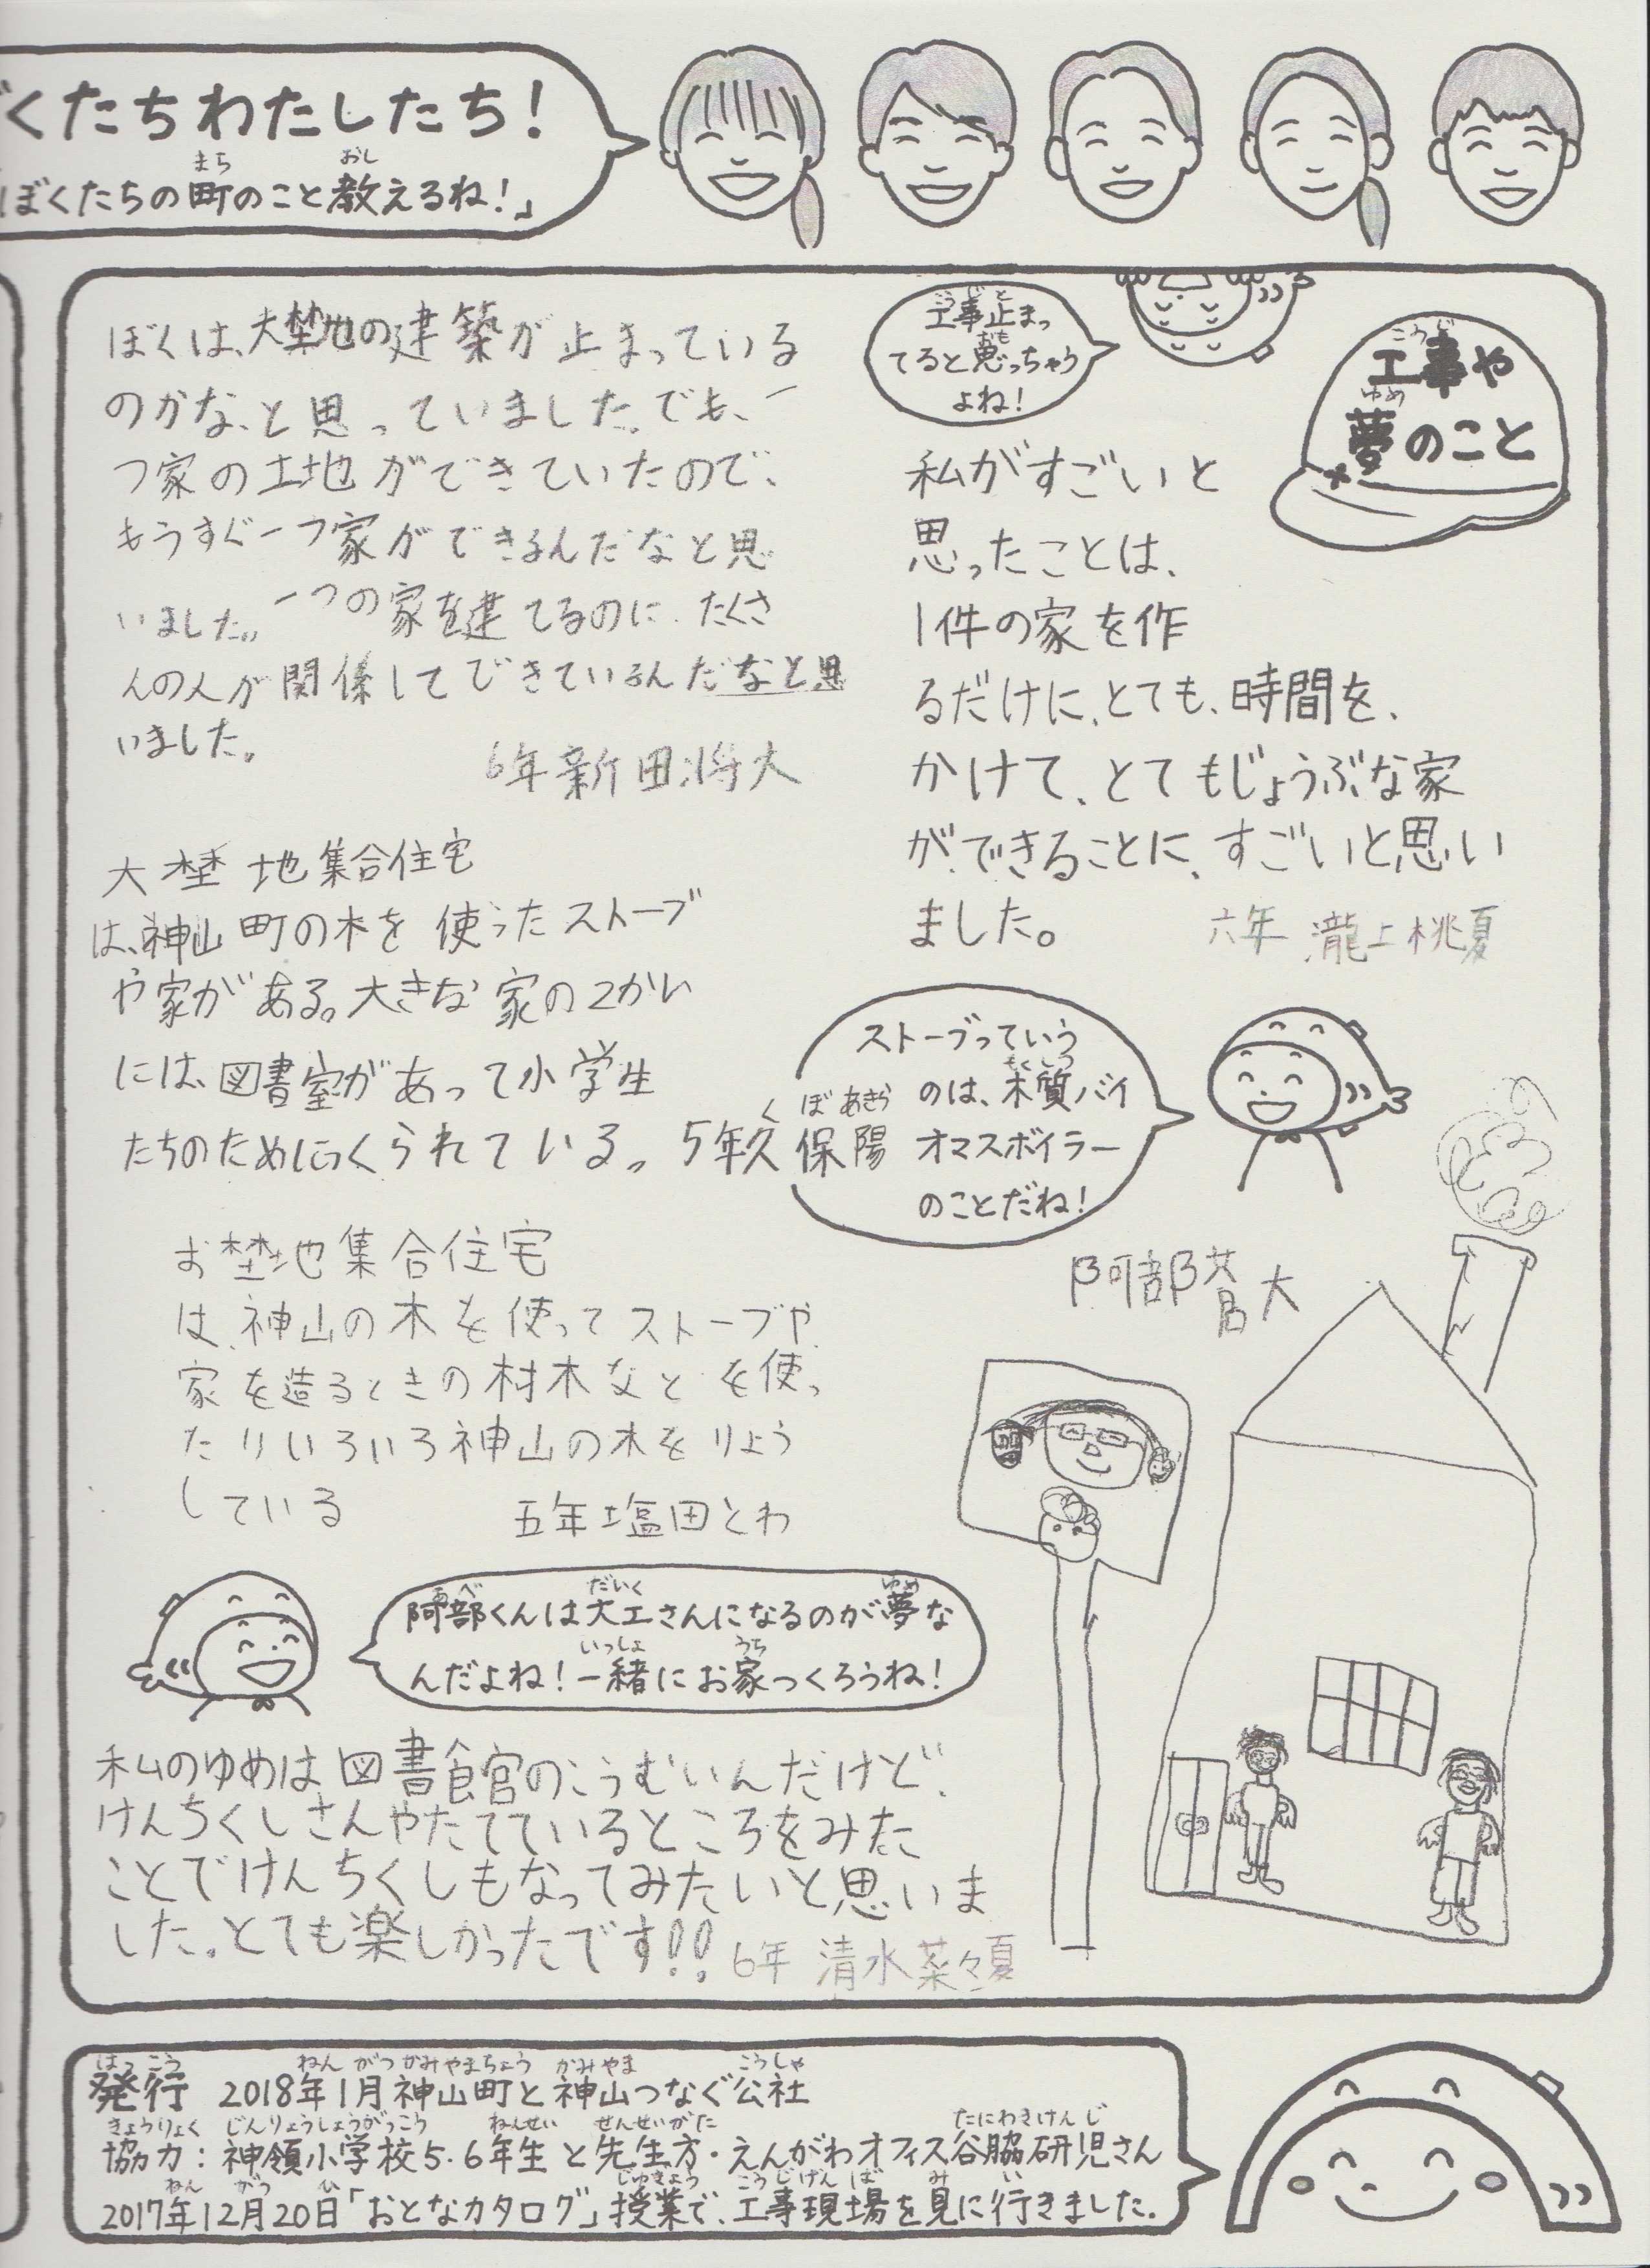 くたちわたしたち!
ぼくたちの町のこと教えるね!」
まち
おし
工事や
夢のこと
こうじ
ゆめ
工事止まっ
てると思っちゃう
よね!
こうじと
おも
私がすごいと
思ったことは、
1件の家を作
るだけに、とても、時間を、
かけて、とてもじょうぶな家
ができることに、すごいと思い
ました。
六年 瀧上桃夏
ぼくは、大埜地の建築が止まっている
のかな、と思っていました。でも、一
つ家の土地ができていたので、
もうすぐ一つ家ができるんだなと思
いました。一つの家を建てるのに、たくさ
んの人が関係してできているんだなと思
いました。
6年 新田将大
大埜地集合住宅
は、神山町の木を使ったストーブ
や家がある。大きな家の2かい
には、図書室があって小学生
たちのためにつくられている。 5年久保陽
くぼあきら
ストーブっていう
のは、木質バイ
オマスボイラー
のことだね!
もくしつ
お埜地集合住宅
は、神山の木を使ってストーブや
家を造るときの材木などを使っ
たりいろいろ神山の木をりよう
している
五年塩田とわ
阿部蒼大
阿部くんは大工さんになるのが夢な
んだよね!一緒にお家つくろうね!
あべ
だいく
ゆめ
いっしょ
うち
私のゆめは図書館のこうむいんだけど、
けんちくしさんやたてているところをみた
ことでけんちくしもなってみたいと思いま
した。とても楽しかったです!!
6年 清水菜々夏
はっこう ねん がつ かみやまちょう かみやま こうしゃ
発行 2018年1月 神山町と神山つなぐ公社
きょうりょく じんりょうしょうがっこう ねんせい せんせいがた たにわきけんじ
協力:神領小学校5・6年生と先生方・えんがわオフィス谷脇研児さん
ねん がつ ひ じゅぎょう こうじげんば み い
2017年12月20日「おとなカタログ」授業で、工事現場を見に行きました。